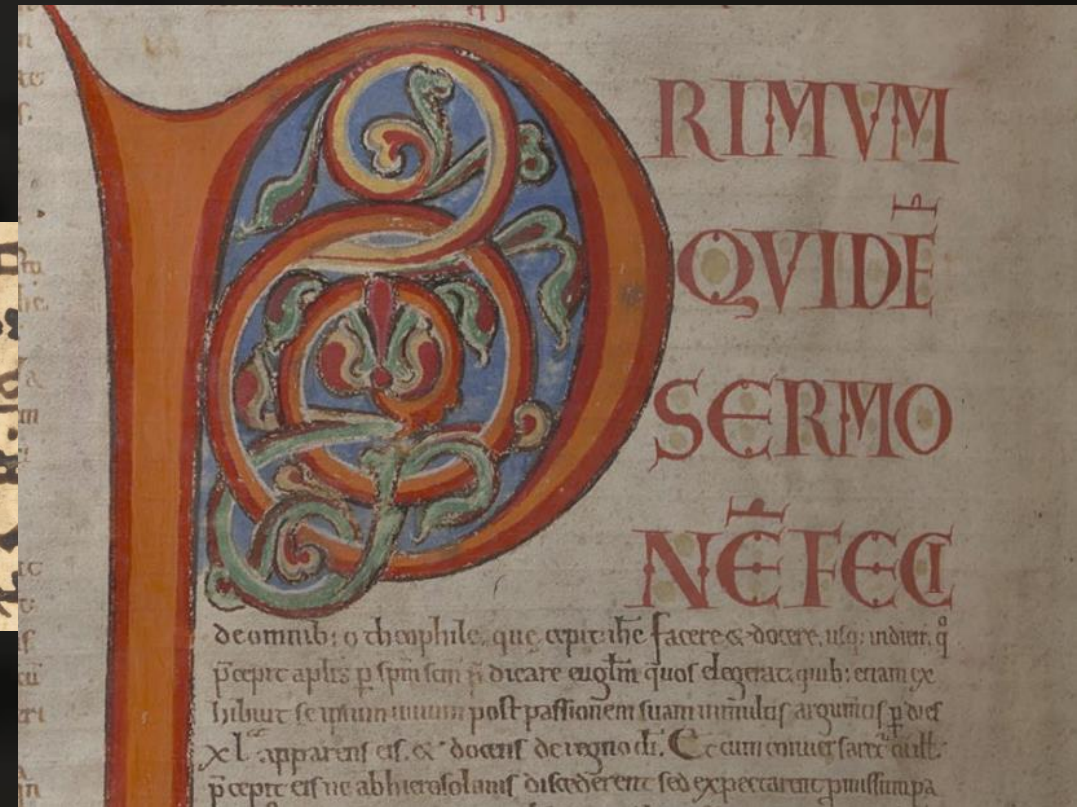 PRIMVM
QVIDĒ
SERMO
NĒ FECI
deomnib; o theophile. que cepit ihc facere & docere. usq; indiem. q̊
p̄cepit aplis p spm scm p̄dicare euglm quos elegerat. quib; etiam ex
hibuit se ipsum uiuum post passionem suam inmultis argumtis p̱ dies
xl. apparens eis. & docens de regno di. Et cum conuersaret
p̄cepit eis ne abhierosolimis discederent sed expectarent pmissum pa